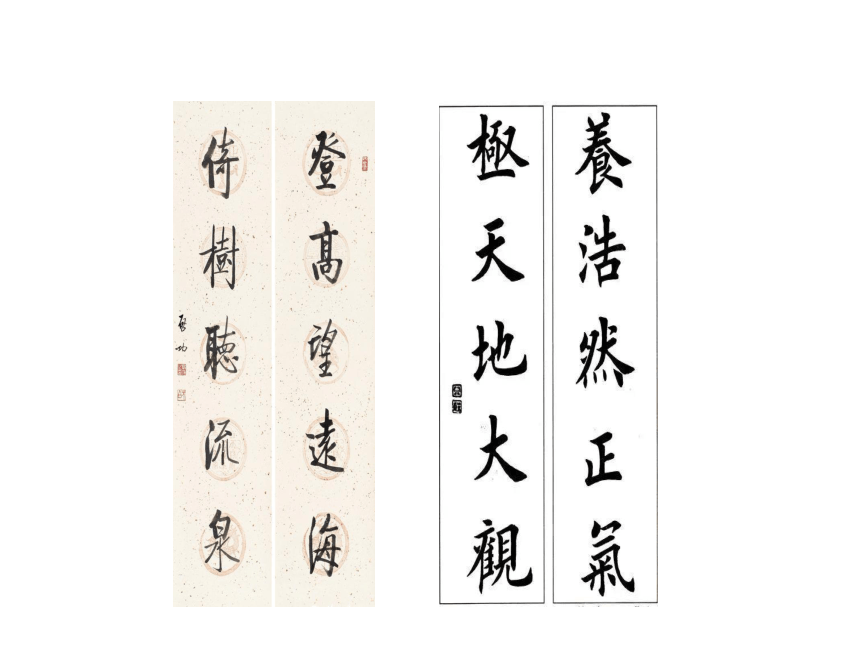 登高望遠海
倚樹聽流泉
啟功
養浩然正氣
極天地大觀